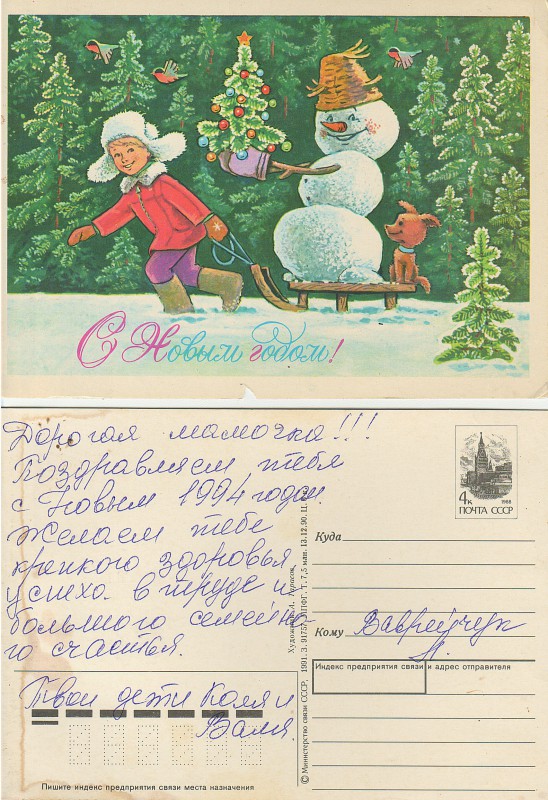 С Новым годом!
Дорогая мамочка!!!
Поздравляем тебя
с Новым 1994 годом.
Желаем тебе
крепкого здоровья
успеха в труде и
большого семейно
го счастья.
Твои дети Коля и
Валя.
Пишите индекс предприятия связи места назначения
© Министерство связи СССР, 1991. З.
Художник А.
13.12.90.
4к
1988
ПОЧТА СССР
Куда
Кому
Индекс предприятия связи и адрес отправителя